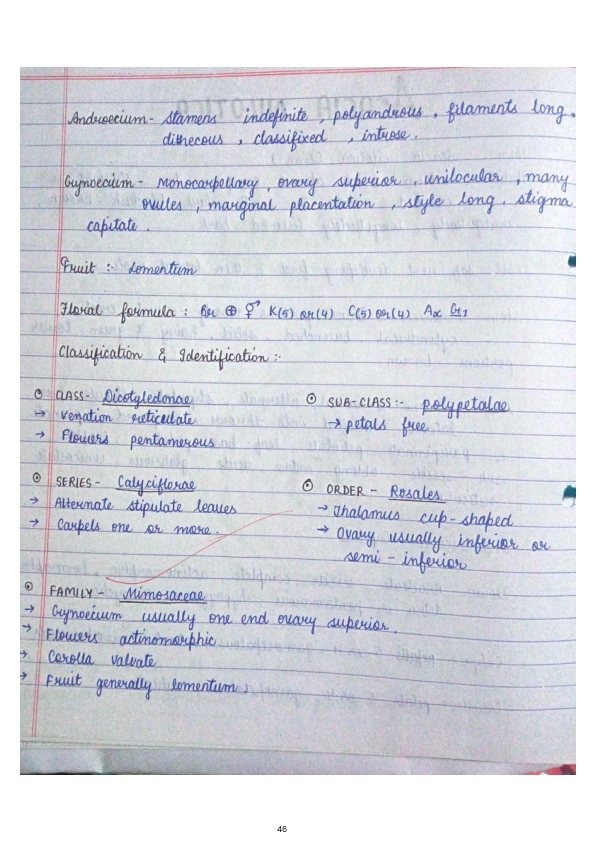 Androecium - Stamens indefinite, polyandrous, filaments long,
dithecous, classifixed, introse.
Gynoecium - Monocarpellary, ovary superior, unilocular, many
ovules, marginal placentation, style long, stigma
capitate.
Fruit :- Lomentum
Floral formula : Br ⊕ ⚥ K(5) or (4) C(5) or (4) A∝ G1
Classification & Identification :-
⊙ CLASS - Dicotyledonae
→ venation reticulate
→ Flowers pentamerous
⊙ SUB-CLASS :- polypetalae
→ petals free
⊙ SERIES - Calyciflorae
→ Alternate stipulate leaves
→ Carpels one or more.
⊙ ORDER - Rosales
→ Thalamus cup-shaped
→ Ovary usually inferior or
semi-inferior
⊙ FAMILY - Mimosaceae
→ Gynoecium usually one end ovary superior.
→ Flowers actinomorphic
→ Corolla valvate
→ Fruit generally lomentum.
46